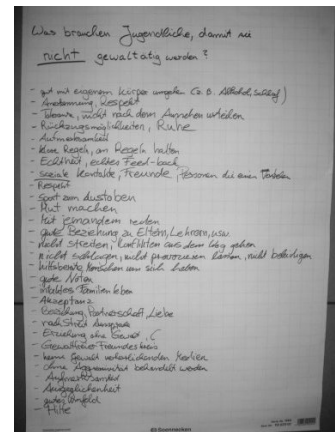 Was brauchen Jugendliche, damit sie
nicht gewalttätig werden?
- gut mit eigenem Körper umgehen (z.B. Alkohol, Schlaf)
- Anerkennung, Respekt
- Toleranz, nicht nach dem Aussehen urteilen
- Rückzugsmöglichkeiten, Ruhe
- Aufmerksamkeit
- klare Regeln, an Regeln halten
- Echtheit, echtes Feed-back
- soziale Kontakte, Freunde, Personen die einen
- Respekt
- Sport zum Austoben
- Mut machen
- Mit jemandem reden
- gute Beziehung zu Eltern, Lehrern, usw.
- nicht streiten, Konflikten aus dem Weg gehen
- nicht schlagen, nicht provozieren lassen, nicht beleidigen
- hilfsbereite Menschen um sich haben
- gute Noten
- intaktes Familienleben
- Akzeptanz
- Beziehung, Partnerschaft, Liebe
- nach Streit Aussprache
- Erziehung ohne Gewalt
- Gewaltfreier Freundeskreis
- keine Gewalt verherrlichenden Medien
- ohne Aggressivität behandelt werden
- Aufmerksamkeit
- Ausgeglichenheit
- gutes Umfeld
- Hilfe